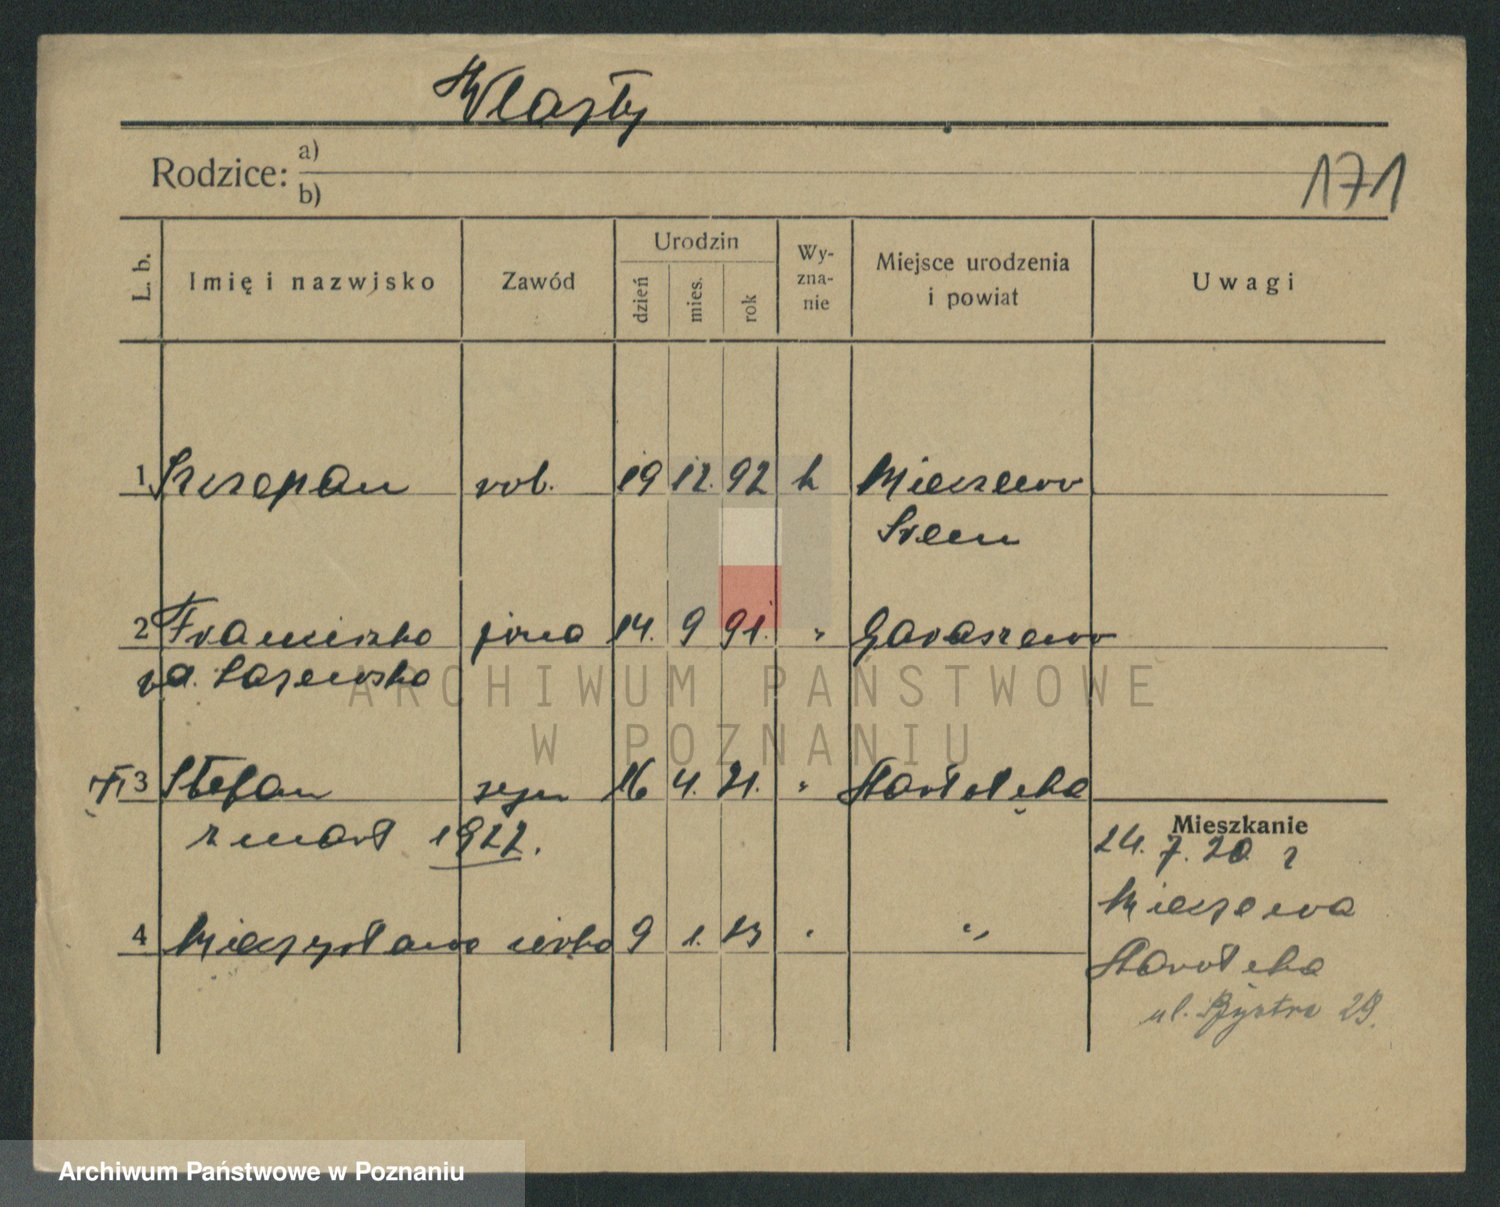 Własty
Rodzice: a)
b)
171
L. b. Imię i nazwisko Zawód Urodzin dzień mies. rok Wy-zna-nie Miejsce urodzenia i powiat Uwagi
1 Szczepan rob. 19 12. 92 k Mieczewo
Śrem
2 Franciszka żona 14. 9 91. " Garaszewo
z d. Łajewska
3 Stefan syn 16 4. 21. " Starołęka
zmarł 1922.
4 Mieczysława córka 9 1. 23 " "
Mieszkanie
24. 7. 20 z
Mieczewa
Starołęka
ul. Bystra 29.
ARCHIWUM PAŃSTWOWE
W POZNANIU
Archiwum Państwowe w Poznaniu